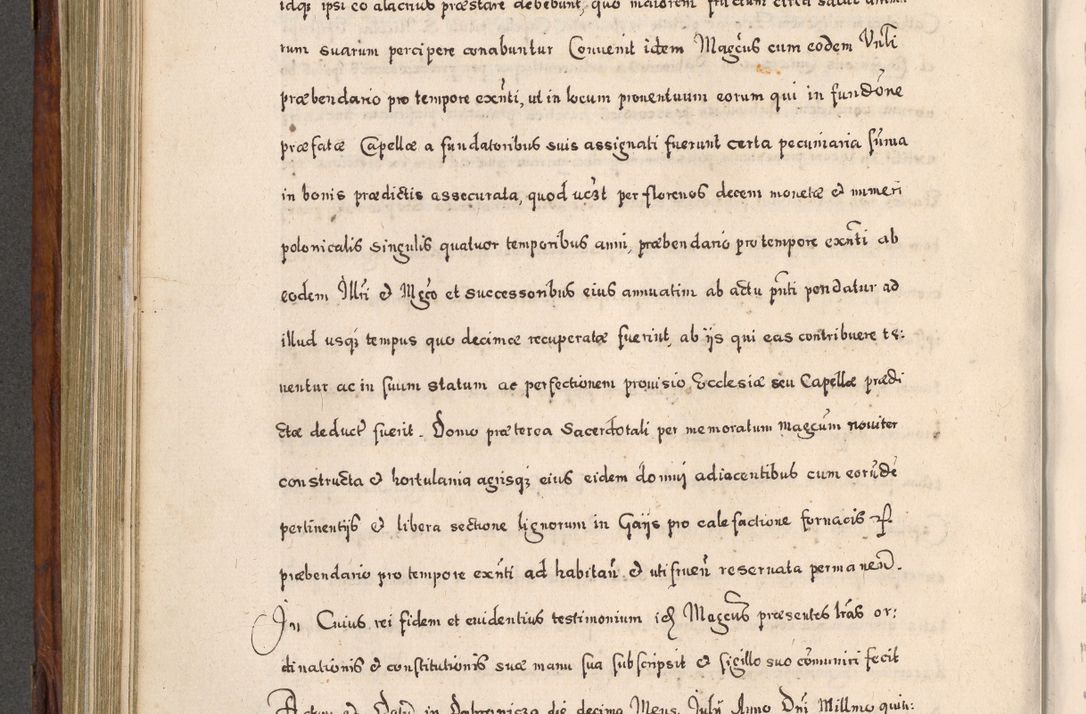 idq₃ ipsi eo alacrius præstare debebunt, quo maiorem fructum circa salut
rum suarum percipere conabuntur Conuenit idem Magcus cum eodem Vnłi
præbendario pro tempore exñti, ut in locum prouentuum eorum qui in fundōne
præfatæ Capellæ a fundatoribus suis assignati fuerunt certa pecuniaria sum̃a
in bonis prædictis assecurata, quod uc₃t per florenos decem monetæ & numeri
polonicalis singulis quatuor temporibus anni, præbendario pro tempore exñti ab
eodem Illri & Mgco et successoribus eius annuatim ab actu pñti pendatur ad
illud usq₃ tempus quo decimæ recuperatæ fuerint, ab ijs qui eas contribuere te:
nentur ac in suum statum ac perfectionem prouisio Ecclesiæ seu Capellæ prædi
ctæ deduct fuerit. Domo præterea Sacerdotali per memoratum magcum nouiter
constructa & hortulania agrisq₃ eius eidem domui adiacentibus cum eorūdē
pertinentijs & libera sectione lignorum in Gaijs pro calefactione fornacis R.
præbendario pro tempore exñti ad habitañ & utifrueñ reseruata permaneñ.
In Cuius rei fidem et euidentius testimonium id Magcus præsentes lras or:
dinationis & constitutionis suæ manu sua subscripsit & sigillo suo cōmuniri fecit
Actum & Datū in Dabrownicza die decima Mens. Julij Anno Dñi Millmo quin: